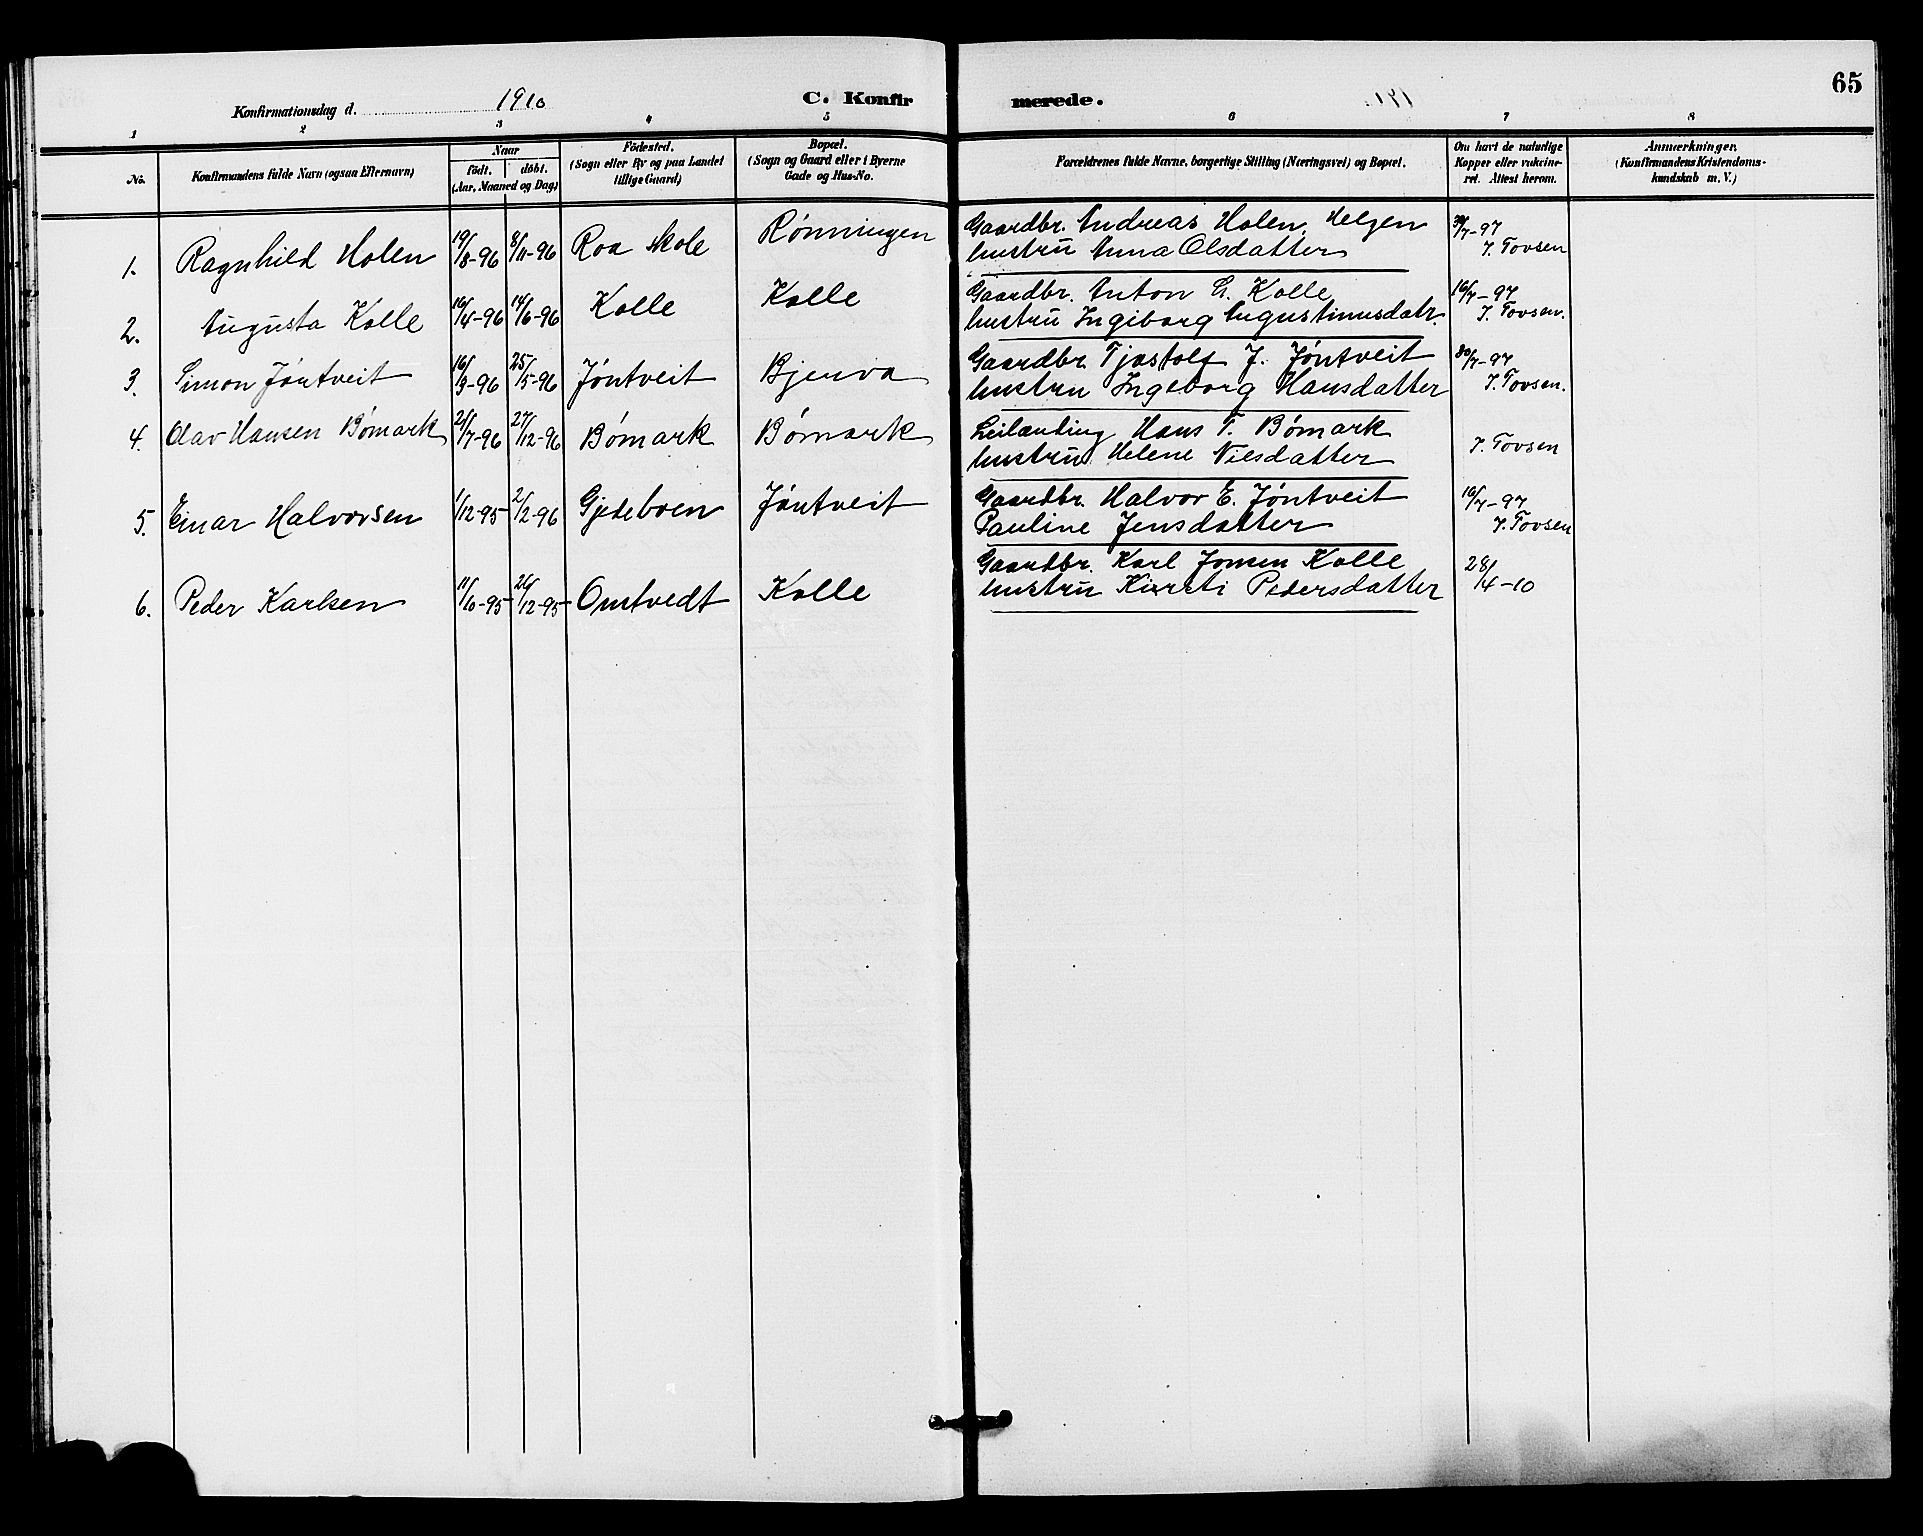 65
Konfirmationsdag d. 1910 C. Konfirmerede.
1 2 3 4 5 6 7 8
No.
Konfirmandens fulde Navn (ogsaa Efternavn)
Naar
födt. döbt.
(Aar, Maaned og Dag)
Födested.
(Sogn eller By og paa Landet
tillige Gaard)
Bopæl.
(Sogn og Gaard eller i Byerne
Gade og Hus-No.
Forældrenes fulde Navne, borgerlige Stilling (Næringsvei) og Bopæl.
Om havt de naturlige
Kopper eller vakcine-
ret. Attest herom.
Anmærkninger.
(Konfirmandens Kristendoms-
kundskab m. V.)
1. Ragnhild Holen 19/8-96 8/11-96 Roa Skole Rønningen
Gaardbr. Andreas Holen, Helgen
hustru Anna Olsdatter
/7-97
J. Tovsen
2. Augusta Kolle 16/4-96 14/6-96 Kolle Kolle
Gaardbr. Anton G. Kolle
hustru Ingiborg Augustinusdatr.
16/7-97
J. Tovsen.
3. Simon Jøntveit 16/3-96 25/5-96 Jøntveit Bjerva
Gaardbr. Tjøstolf J. Jøntveit
hustru Ingeborg Hansdatter
30/7-97
J. Tovsen.
4. Olav Hansen Bømark 21/7-96 27/12-96 Bømark Bømark
Leilænding Hans T. Bømark
hustru Helene Nilsdatter
J. Tovsen
5. Einar Halvorsen 1/12-95 2/2-96 Gjedeboen Jøntveit
Gaardbr. Halvor E. Jøntveit
Pauline Jensdatter
16/7-97
J. Tovsen
6. Peder Karlsen 11/10-95 26/12-95 Omtvedt Kolle
Gaardbr. Karl Jonsen Kolle
hustru Kirsti Pedersdatter
28/4-10